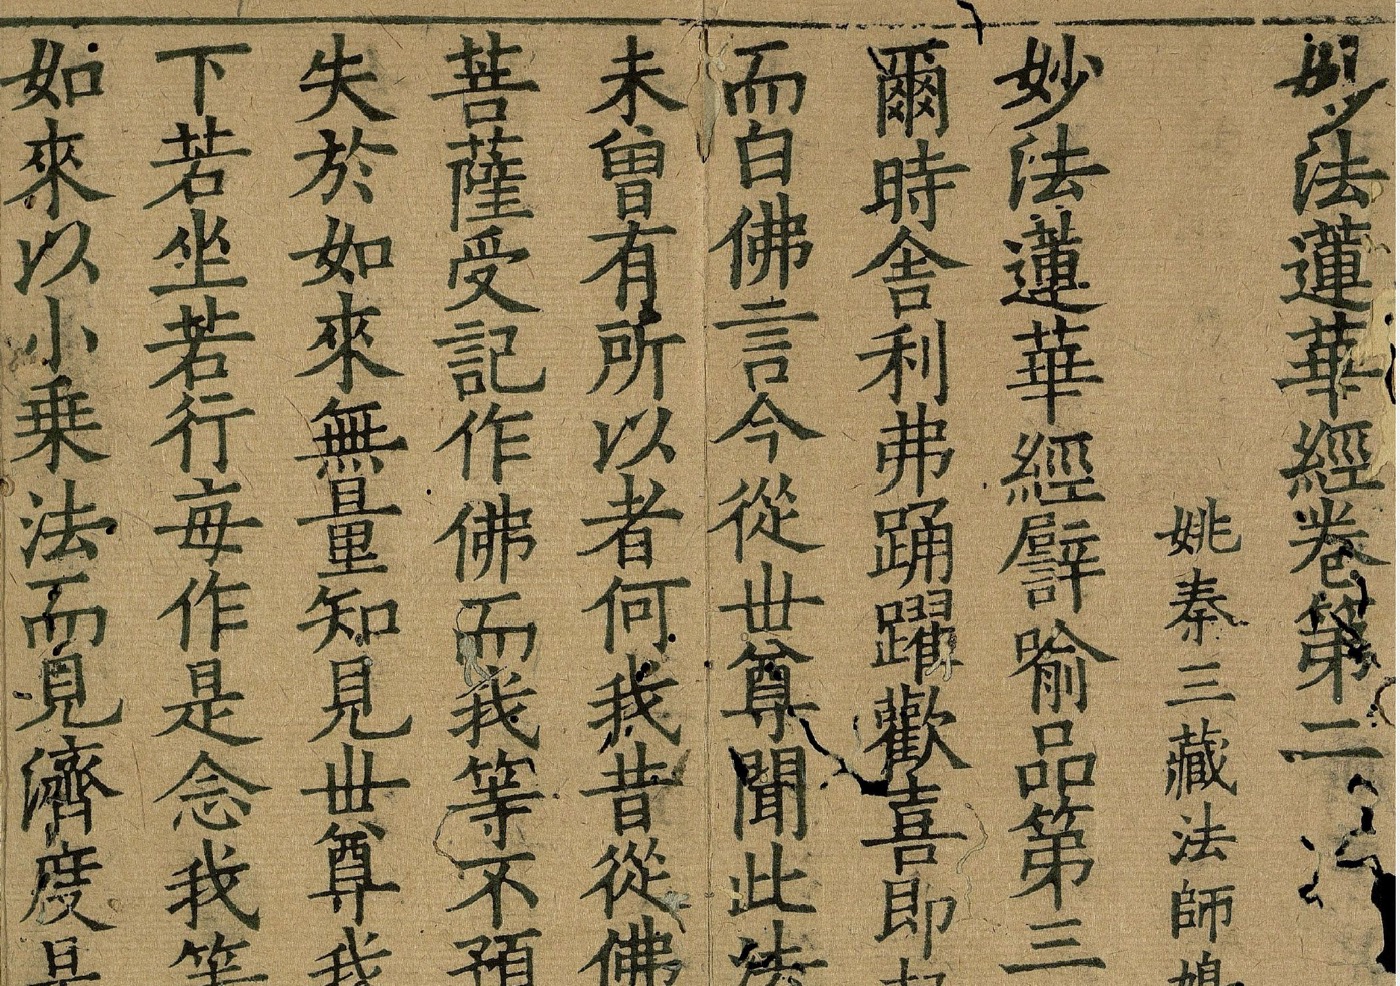 妙法蓮華經卷第二
姚秦三藏法師鳩
妙法蓮華經譬喻品第三
爾時舍利弗踊躍歡喜即起
而白佛言今從世尊聞此法
未曽有所以者何我昔從佛
菩薩受記作佛而我等不預
失於如來無量知見世尊我
下若坐若行每作是念我等
如來以小乗法而見濟度是